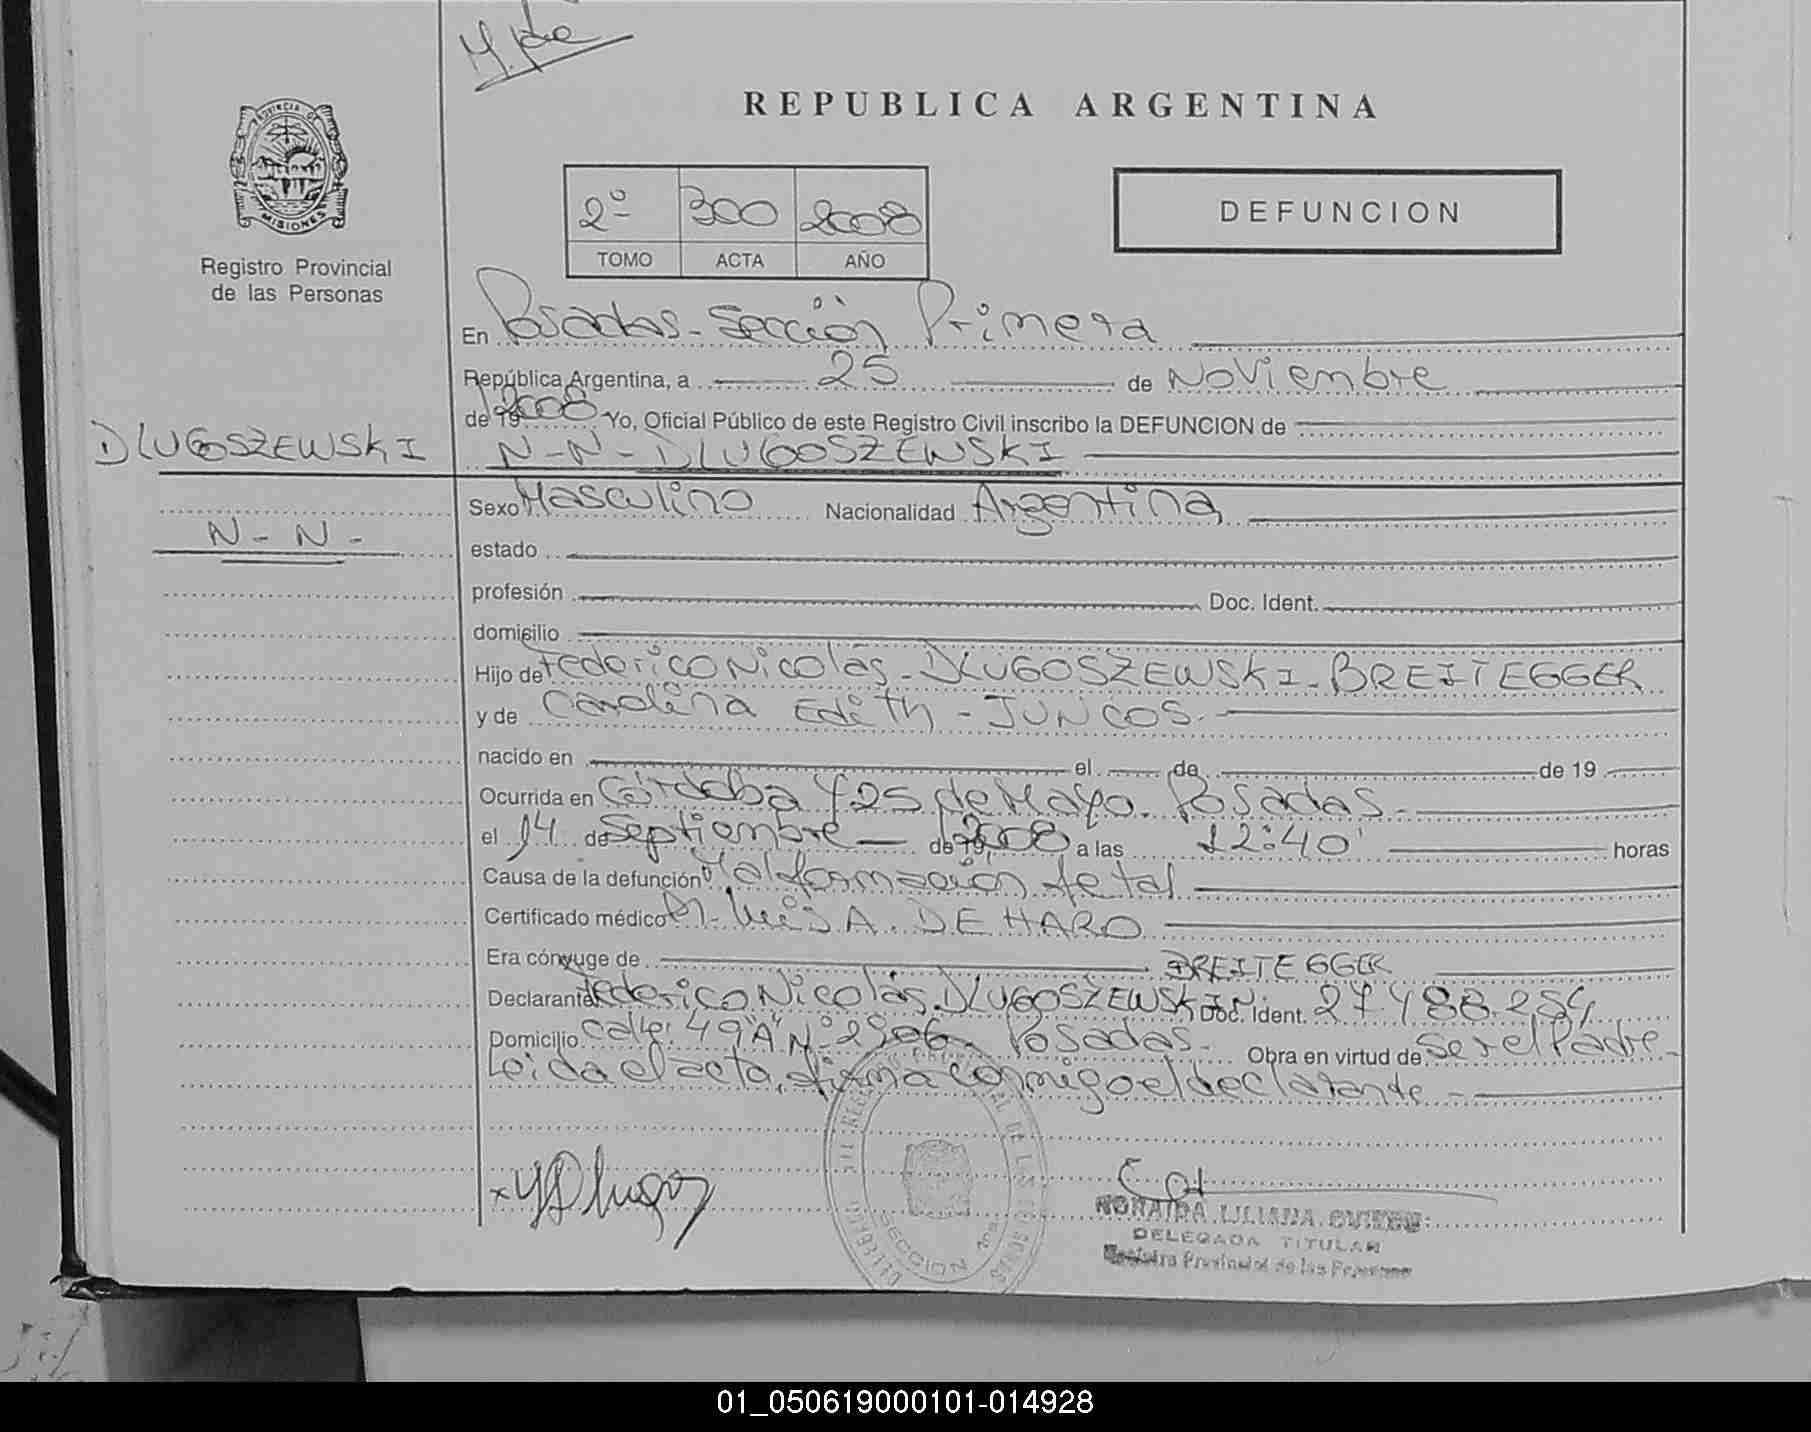 REPUBLICA ARGENTINA
PROVINCIA DE
MISIONES
Registro Provincial
de las Personas
2º 300 2008
TOMO ACTA AÑO
DEFUNCION
En Posadas - Sección Primera
República Argentina, a 25 de Noviembre
de 19 2008 Yo, Oficial Público de este Registro Civil inscribo la DEFUNCION de
DLUGOSZEWSKI
N-N- DLUGOSZEWSKI
N-N-
Sexo Masculino Nacionalidad Argentina
estado
profesión Doc. Ident.
domicilio
Hijo de Federico Nicolás - DLUGOSZEWSKI - BREITEGGER
y de Carolina Edith - JUNCOS.
nacido en el de de 19
Ocurrida en Córdoba y 25 de Mayo. Posadas.
el 14 de Septiembre de 19 2008 a las 12:40' horas
Causa de la defunción Malformación fetal
Certificado médico Dr. Luis A. DE HARO
Era cónyuge de BREITEGGER
Declarante Federico Nicolás DLUGOSZEWSKI Doc. Ident. 27.488.254
Domicilio Calle: 49 "A" Nº 2906 - Posadas. Obra en virtud de Ser el Padre -
Leida el acta, firma conmigo el declarante -
SECCION
NORAIDA LILIANA
DELEGADA TITULAR
Registro Provincial de las Personas
01_050619000101-014928